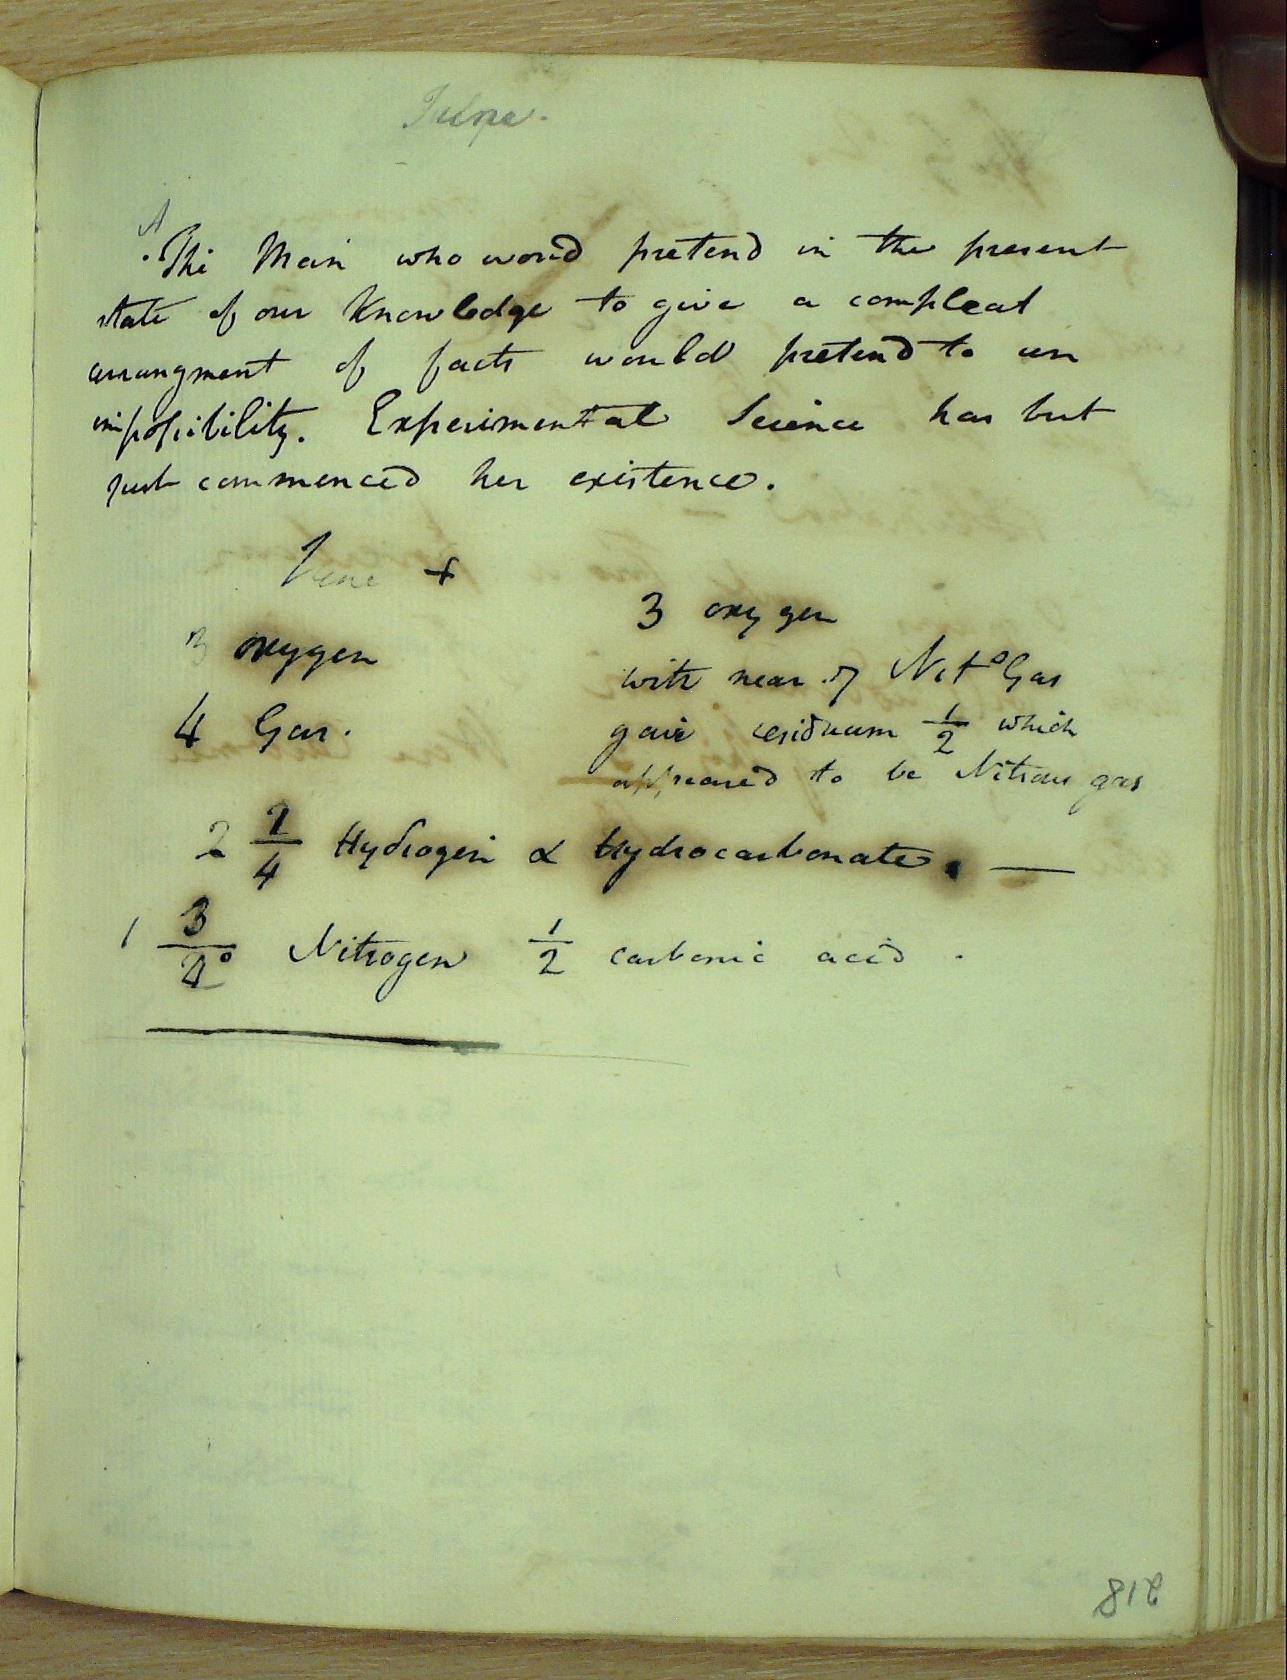 The Man who would pretend in the present
state of our Knowledge to give a compleat
arrangment of facts would pretend to an
impossibility. Experimental Science has but
just commenced her existence.
+
3 oxygen
4 Gas.
3 oxygen
with near 7 Nits Gas
gave residuum 1/2 which
appeared to be Nitrous gas
2 1/4 Hydrogen & Hydrocarbonate. —
1 3/4 Nitrogen 1/2 carbonic acid.